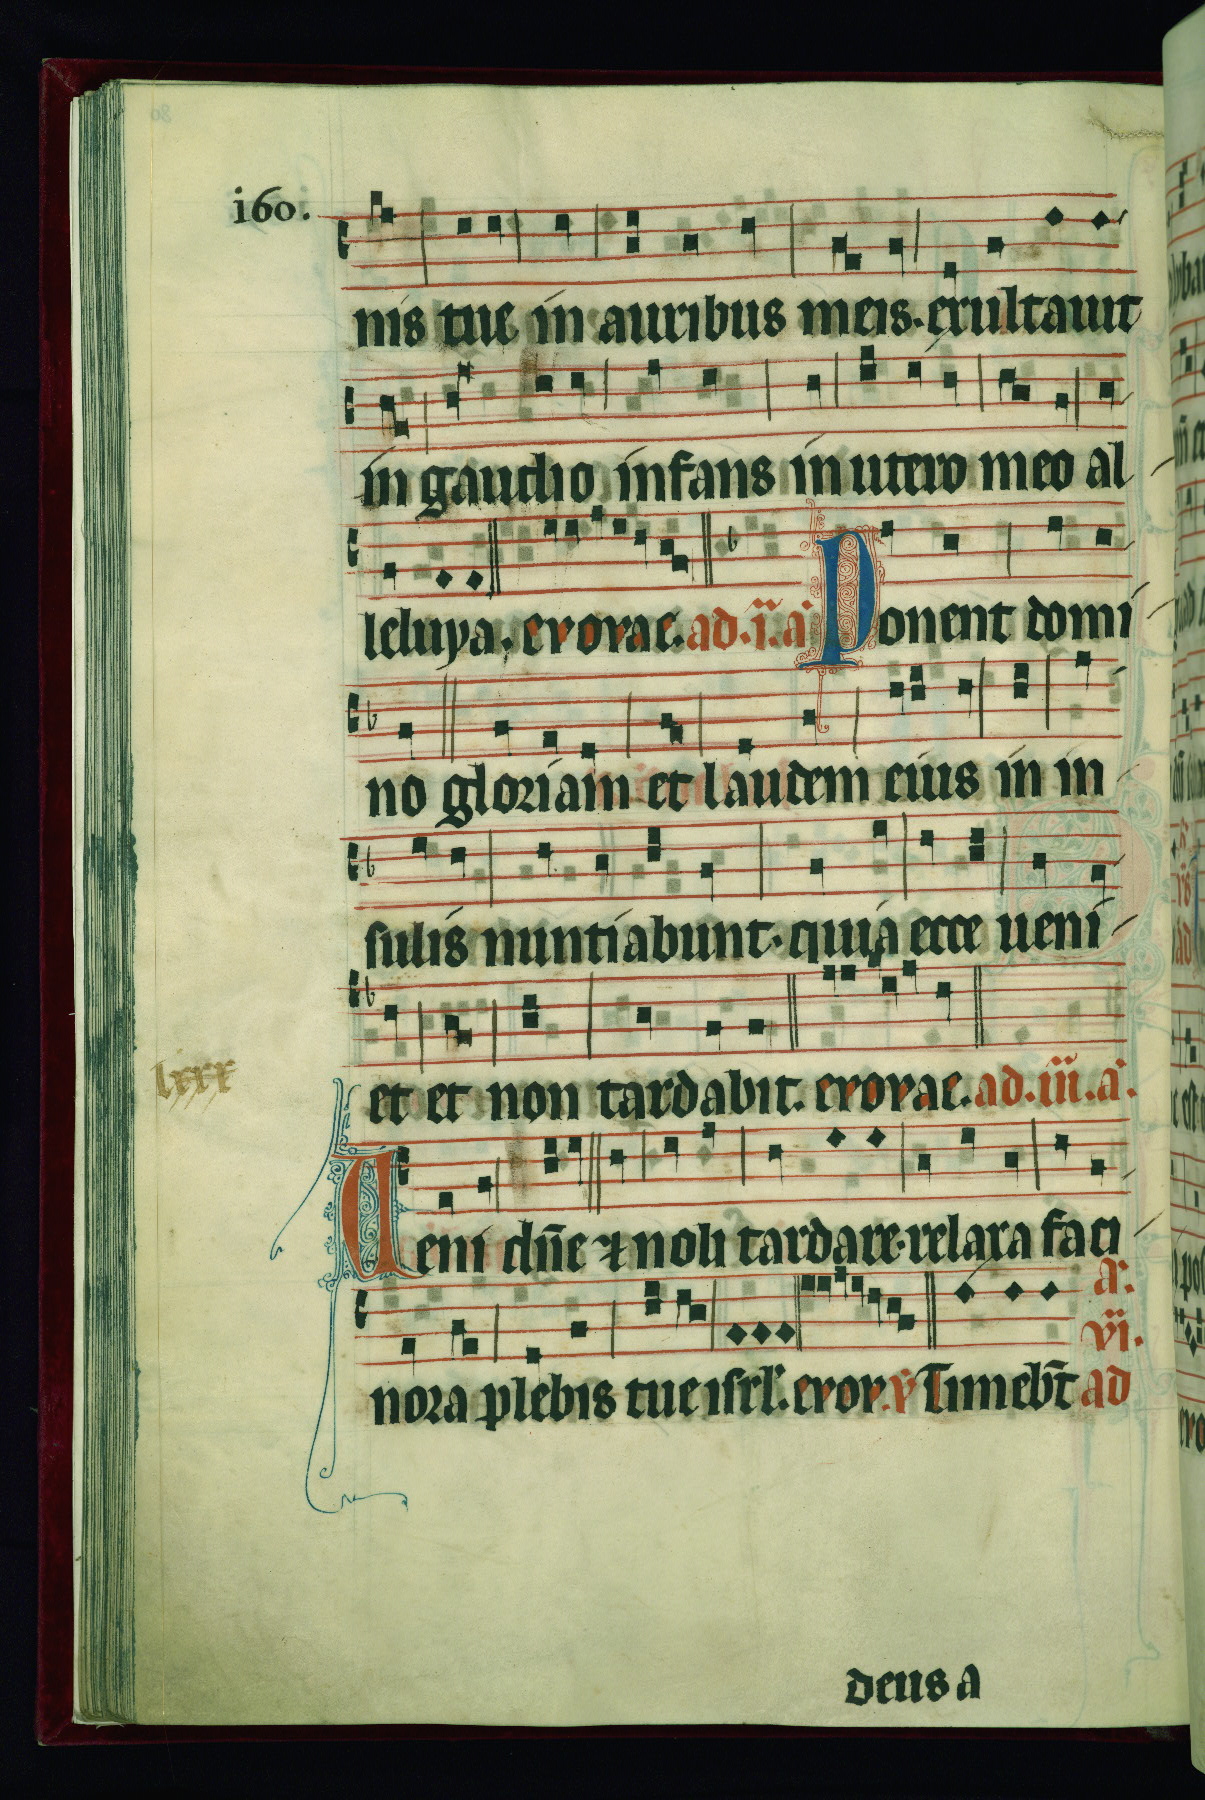 160.
nis tue in auribus meis. exultauit
in gaudio infans in utero meo al
leluya. evovae. ad .ii. a̓ Ponent domi
no gloriam et laudem eius in in
sulis nuntiabunt. quia ecce ueni
et et non tardabit. evovae. ad .iii. a̓.
lxxx
Ueni dn̄e ⁊ noli tardare. relaxa faci
nora plebis tue isrl̓. evov. v̓ Timeb̄t ad
a̓.
vi.
deus a